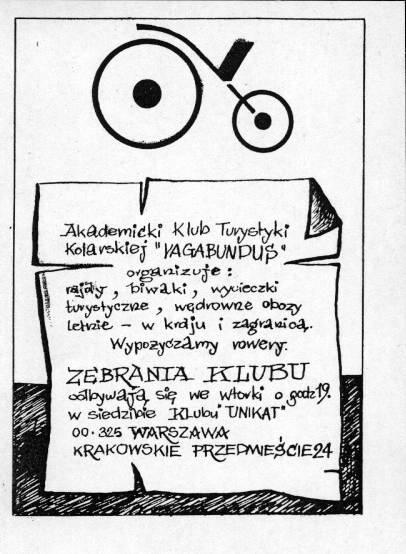 Akademicki Klub Turystyki
Kolarskiej "VAGABUNDUS"
organizuje:
rajdy, biwaki, wycieczki
turystyczne, wędrowne obozy
letnie – w kraju i zagranicą.
Wypożyczamy rowery.
ZEBRANIA KLUBU
odbywają się we wtorki o godz 19.
w siedzibie Klubu "UNIKAT"
00-325 WARSZAWA
KRAKOWSKIE PRZEDMIEŚCIE 24